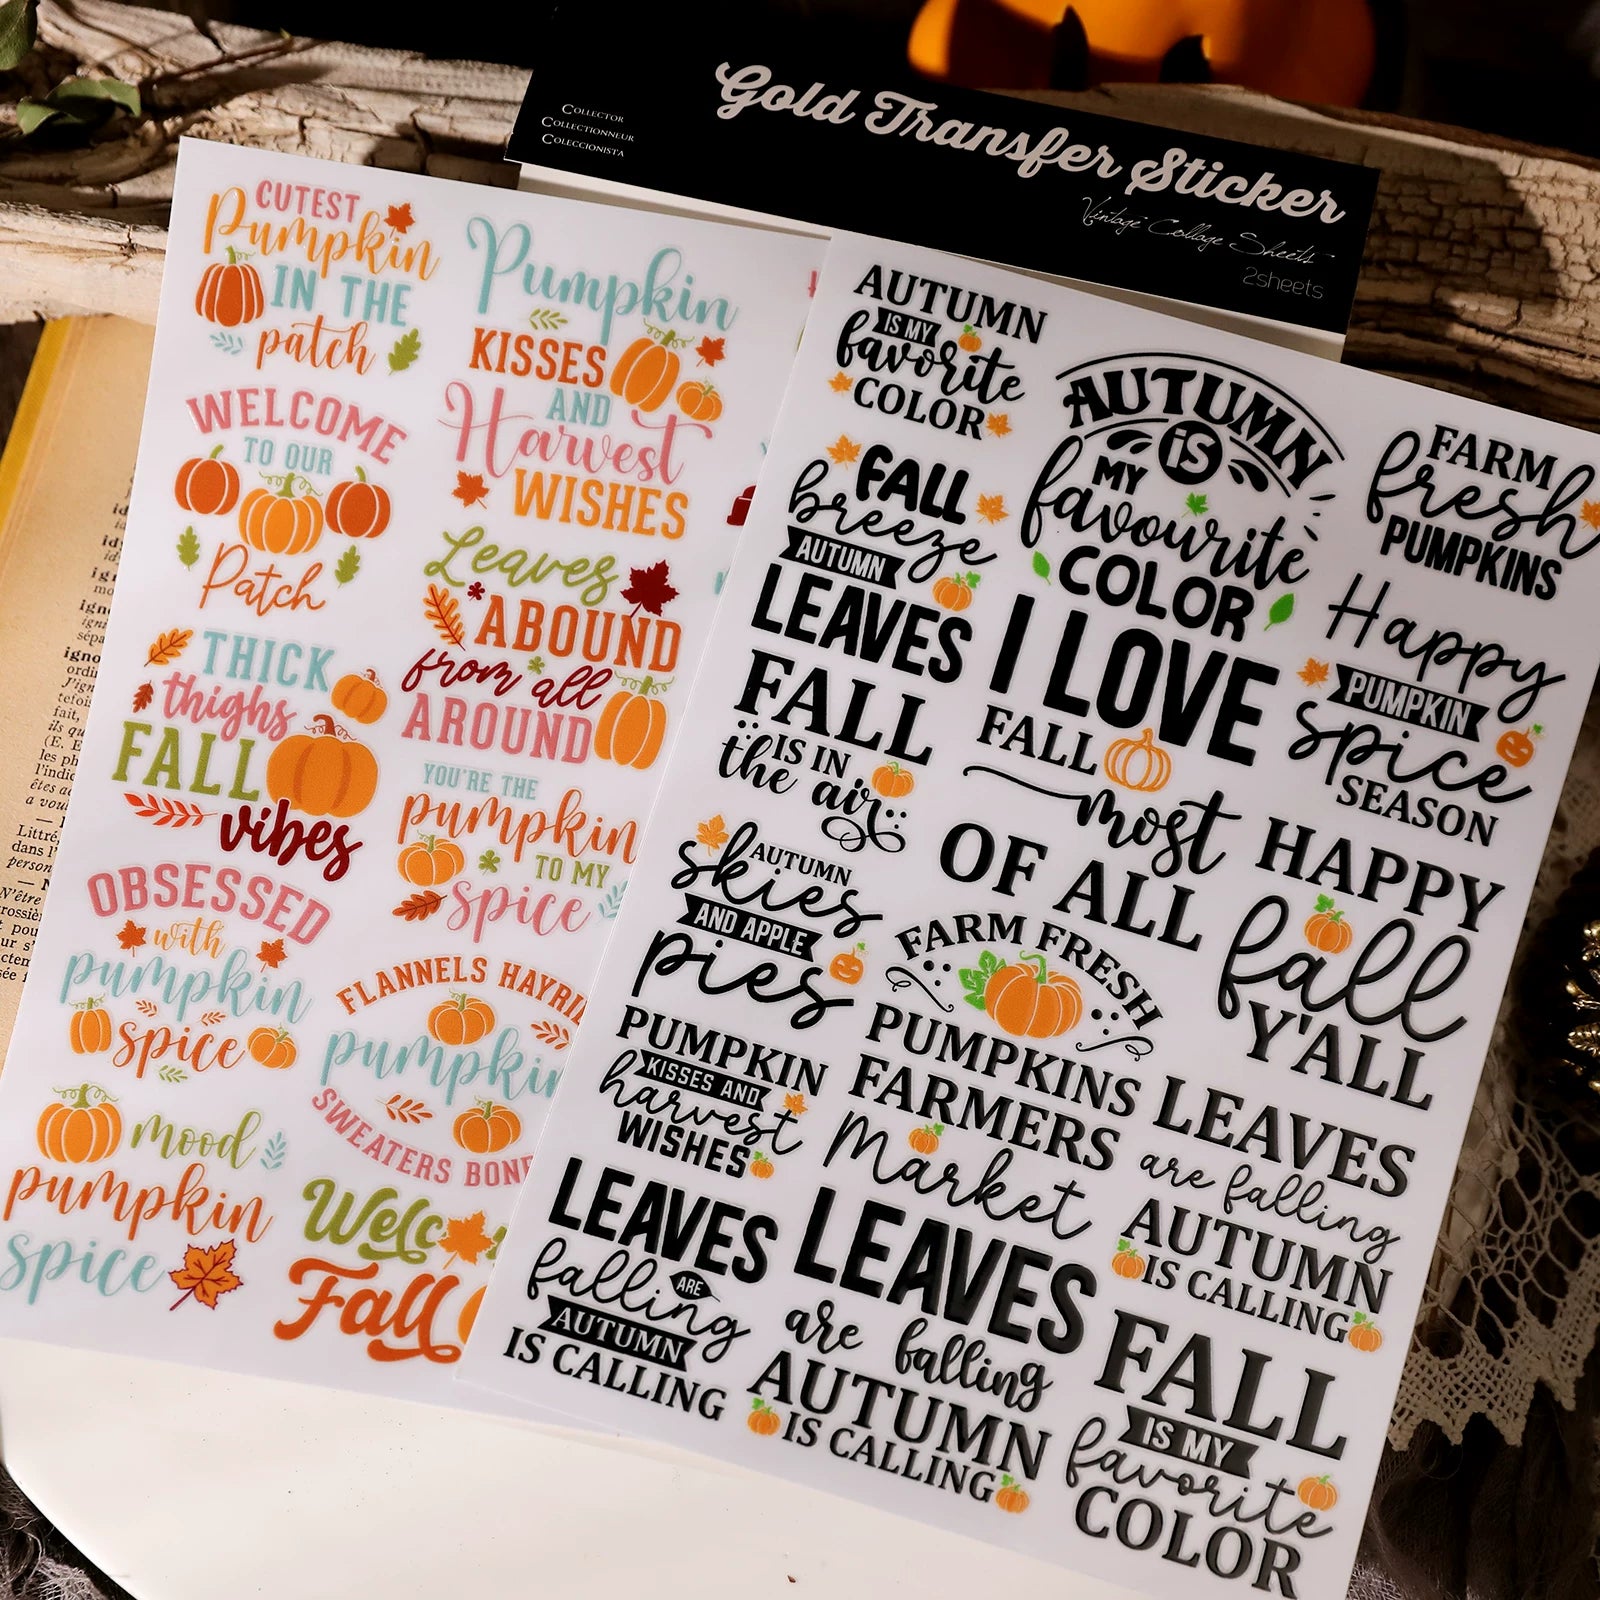 Gold Transfer Sticker
Vintage Collage Sheets
2sheets
COLLECTOR
COLLECTIONNEUR
COLECCIONISTA
CUTEST
Pumpkin
IN THE
patch
WELCOME
TO OUR
Patch
THICK
thighs
FALL
vibes
OBSESSED
with
pumpkin
spice
mood
pumpkin
spice
Pumpkin
KISSES
AND
Harvest
WISHES
Leaves
ABOUND
from all
AROUND
YOU'RE THE
pumpkin
TO MY
spice
FLANNELS
pumpkin
SWEATERS
Fall
AUTUMN
IS MY
favorite
COLOR
FALL
breeze
AUTUMN
LEAVES
FALL
IS IN
the air
AUTUMN
skies
AND APPLE
pies
PUMPKIN
KISSES AND
harvest
WISHES
LEAVES
ARE
falling
AUTUMN
IS CALLING
AUTUMN
IS
MY
favourite
COLOR
I LOVE
FALL
most
OF ALL
FARM FRESH
PUMPKINS
FARMERS
Market
LEAVES
are falling
AUTUMN
IS CALLING
FARM
fresh
PUMPKINS
Happy
PUMPKIN
spice
SEASON
HAPPY
fall
Y'ALL
LEAVES
are falling
AUTUMN
IS CALLING
FALL
IS MY
favorite
COLOR